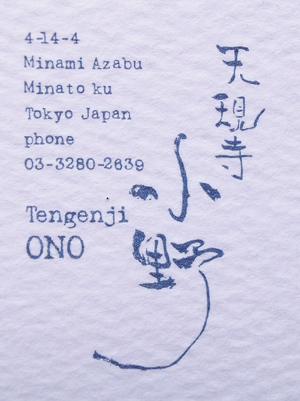 4-14-4
Minami Azabu
Minato ku
Tokyo Japan
phone
03-3280-2639
Tengenji
ONO
天現寺
小野